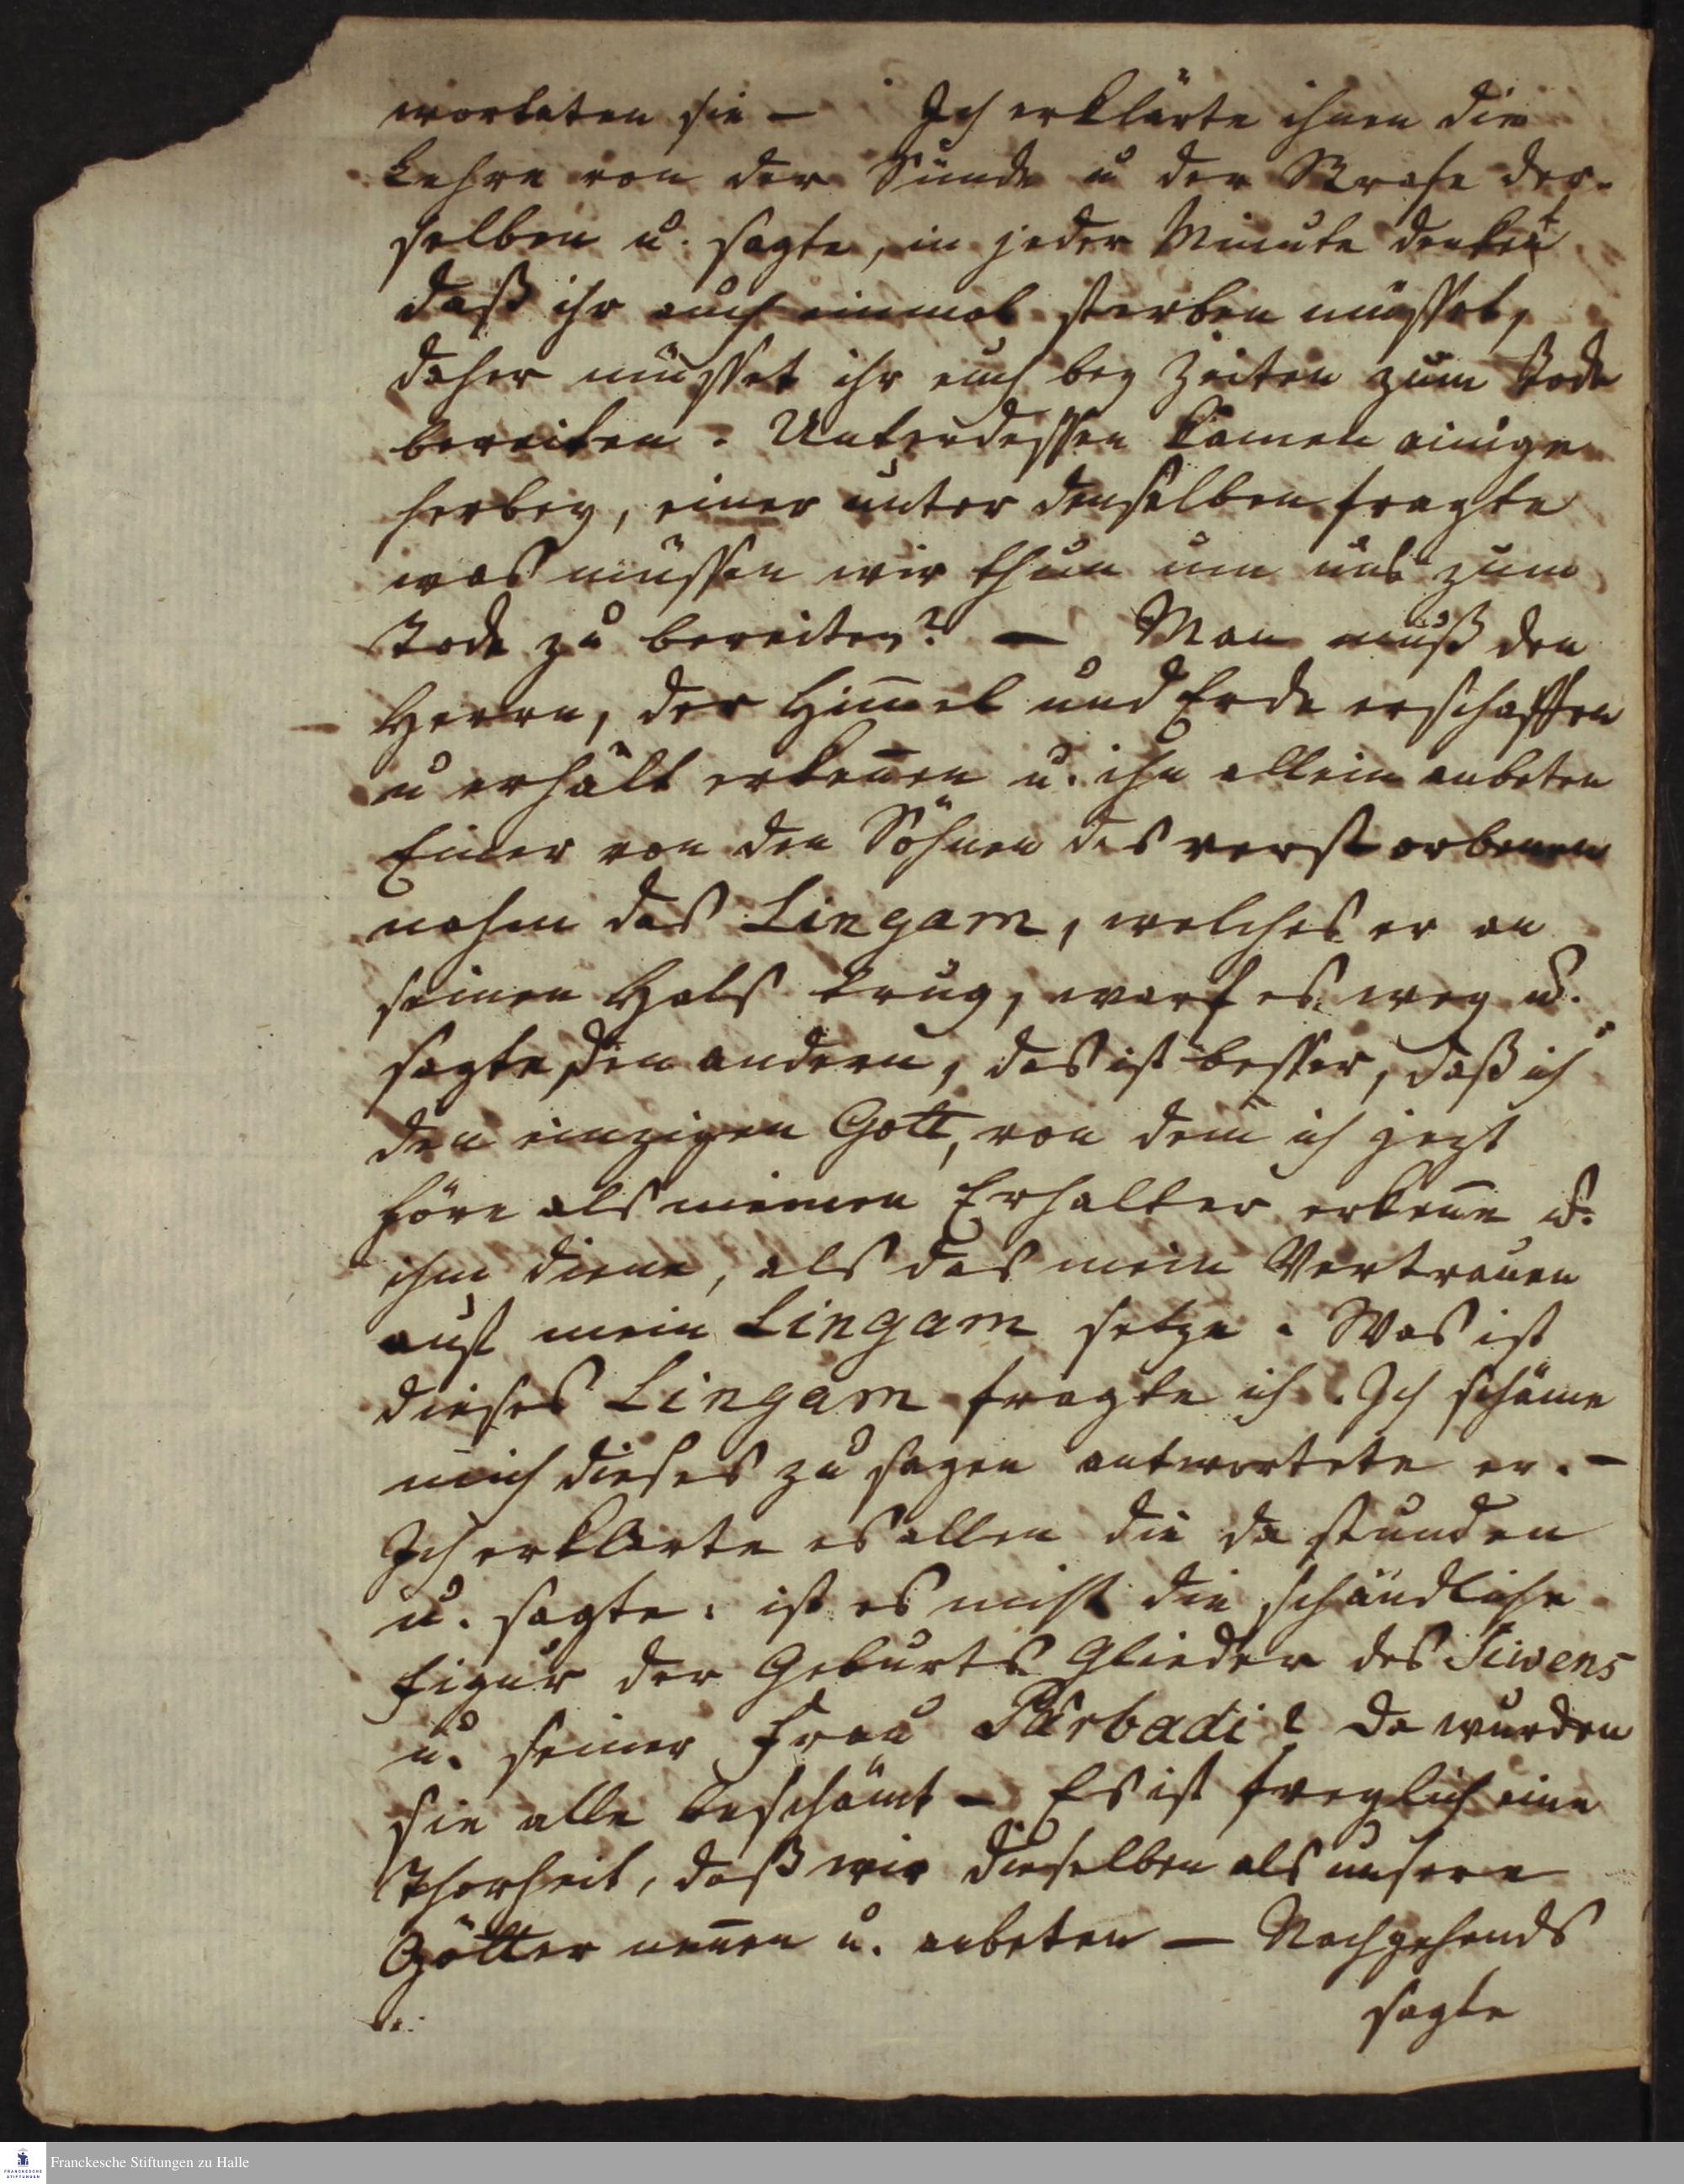 worteten sie — Ich erklärte ihnen die
Lehre von der Sünde u der Strafe der-
selben u. sagte, in jeder Minute denket
daß ihr auch einmal sterben müsset,
daher müsset ihr euch bey Zeiten zum Tode
bereiten. Unterdessen kamen einige
herbey, einer unter denselben fragte
was müssen wir thun um uns zum
Tode zu bereiten? — Man muß den
Herrn, der Him̅el und Erde erschaffen
u erhält erken̅en u. ihn allein anbeten
Einer von den Söhnen des verstorbenen
nahm das Lingam, welches er an
seinen Hals trug, warf es weg u.
sagte den andern, das ist besser, daß ich
den einzigen Gott, von dem ich jezt
höre als meinen Erhalter erken̅e u.
ihm diene, als das mein Vertrauen
auf mein Lingam setze. Was ist
dieses Lingam fragte ich. Ich schäme
mich dieses zu sagen antwortete er. –
Ich erklärte es allen die da stunden
u. sagte: ist es nicht die schändliche
Figur der Geburts Glieder des Siwens
u. seiner Frau Parbadi? Da wurden
sie alle beschämt – Es ist freylich eine
Thorheit, daß wir dieselben als unsere
Götter nen̅en u. anbeten — Nachgehends
sagte
Franckesche Stiftungen zu Halle
FRANCKESCHE STIFTUNGEN